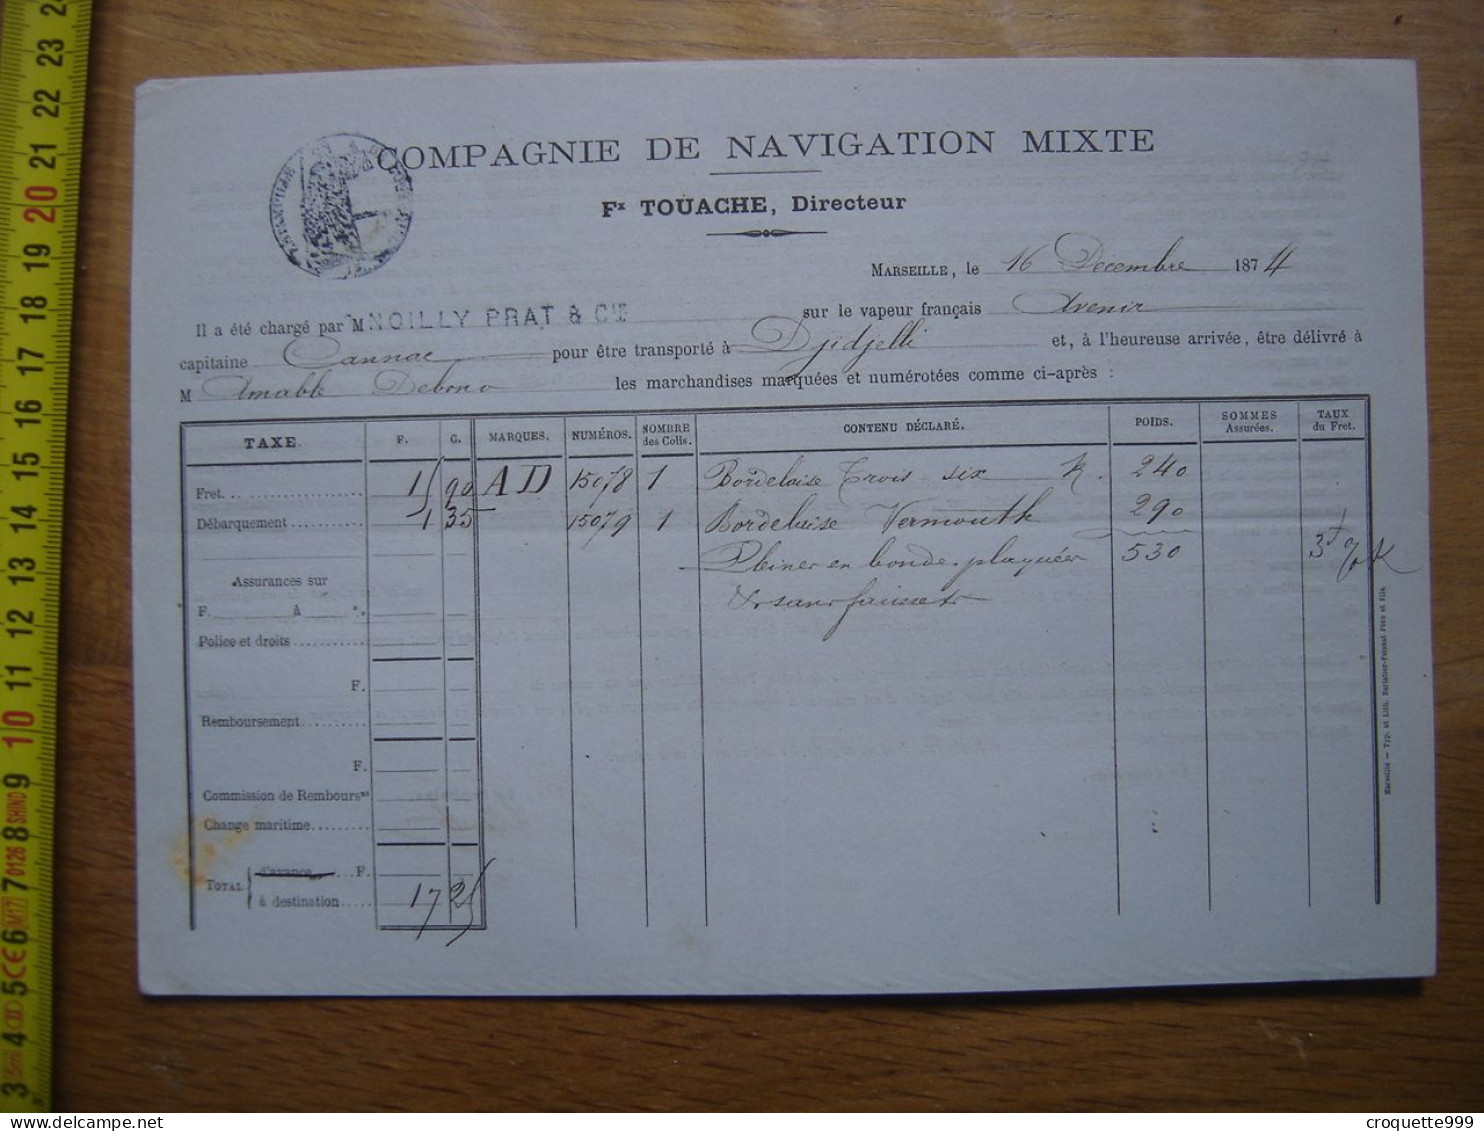 COMPAGNIE DE NAVIGATION MIXTE
Fx TOUACHE, Directeur
MARSEILLE, le 16 Décembre 1874
Il a été chargé par M NOILLY PRAT & CIE sur le vapeur français Avenir
capitaine Cannac pour être transporté à Djidjelli et, à l'heureuse arrivée, être délivré à
M Amable Debono les marchandises marquées et numérotées comme ci-après :
TAXE. F. C. MARQUES. NUMÉROS. NOMBRE des Colis. CONTENU DÉCLARÉ. POIDS. SOMMES Assurées. TAUX du Fret.
Fret. 15 90 AD 15078 1 Bordelaise Trois six K. 240
Débarquement 1 35 15079 1 Bordelaise Vermouth 290
Pleines en bonde plaquées 530 3f %K
Assurances sur
et sans faussets
F. à %
Police et droits
F.
Remboursement
F.
Commission de Rembours
Change maritime
TOTAL d'avance F.
à destination 17 25
Marseille — Typ. et Lith. Barlatier-Feissat Père et Fils
3 4 5 6 7 8 9 10 11 12 13 14 15 16 17 18 19 20 21 22 23 24
5m CE M 7 0126 SHIND
croquette999